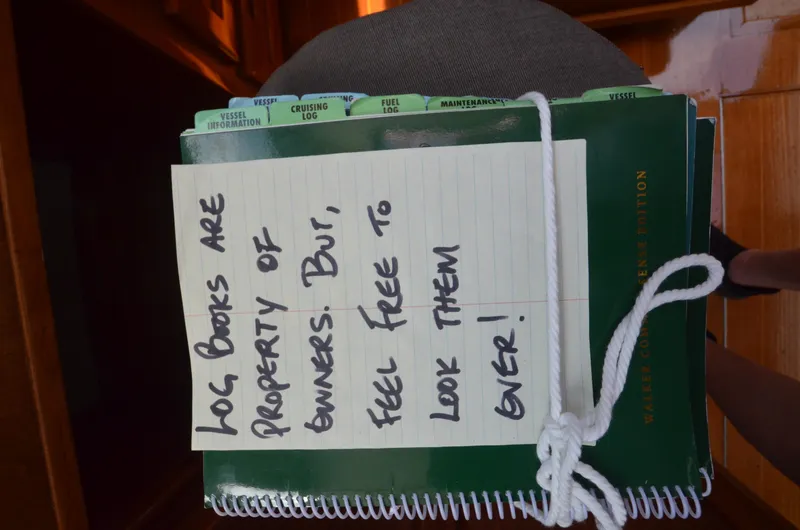 VESSEL
CRUISING
VESSEL
INFORMATION
CRUISING
LOG
FUEL
LOG
MAINTENANCE
LOG
VESSEL
LOG BOOKS ARE
PROPERTY OF
OWNERS. BUT,
FEEL FREE TO
LOOK THEM
OVER!
WALKER COM
ENSE EDITION